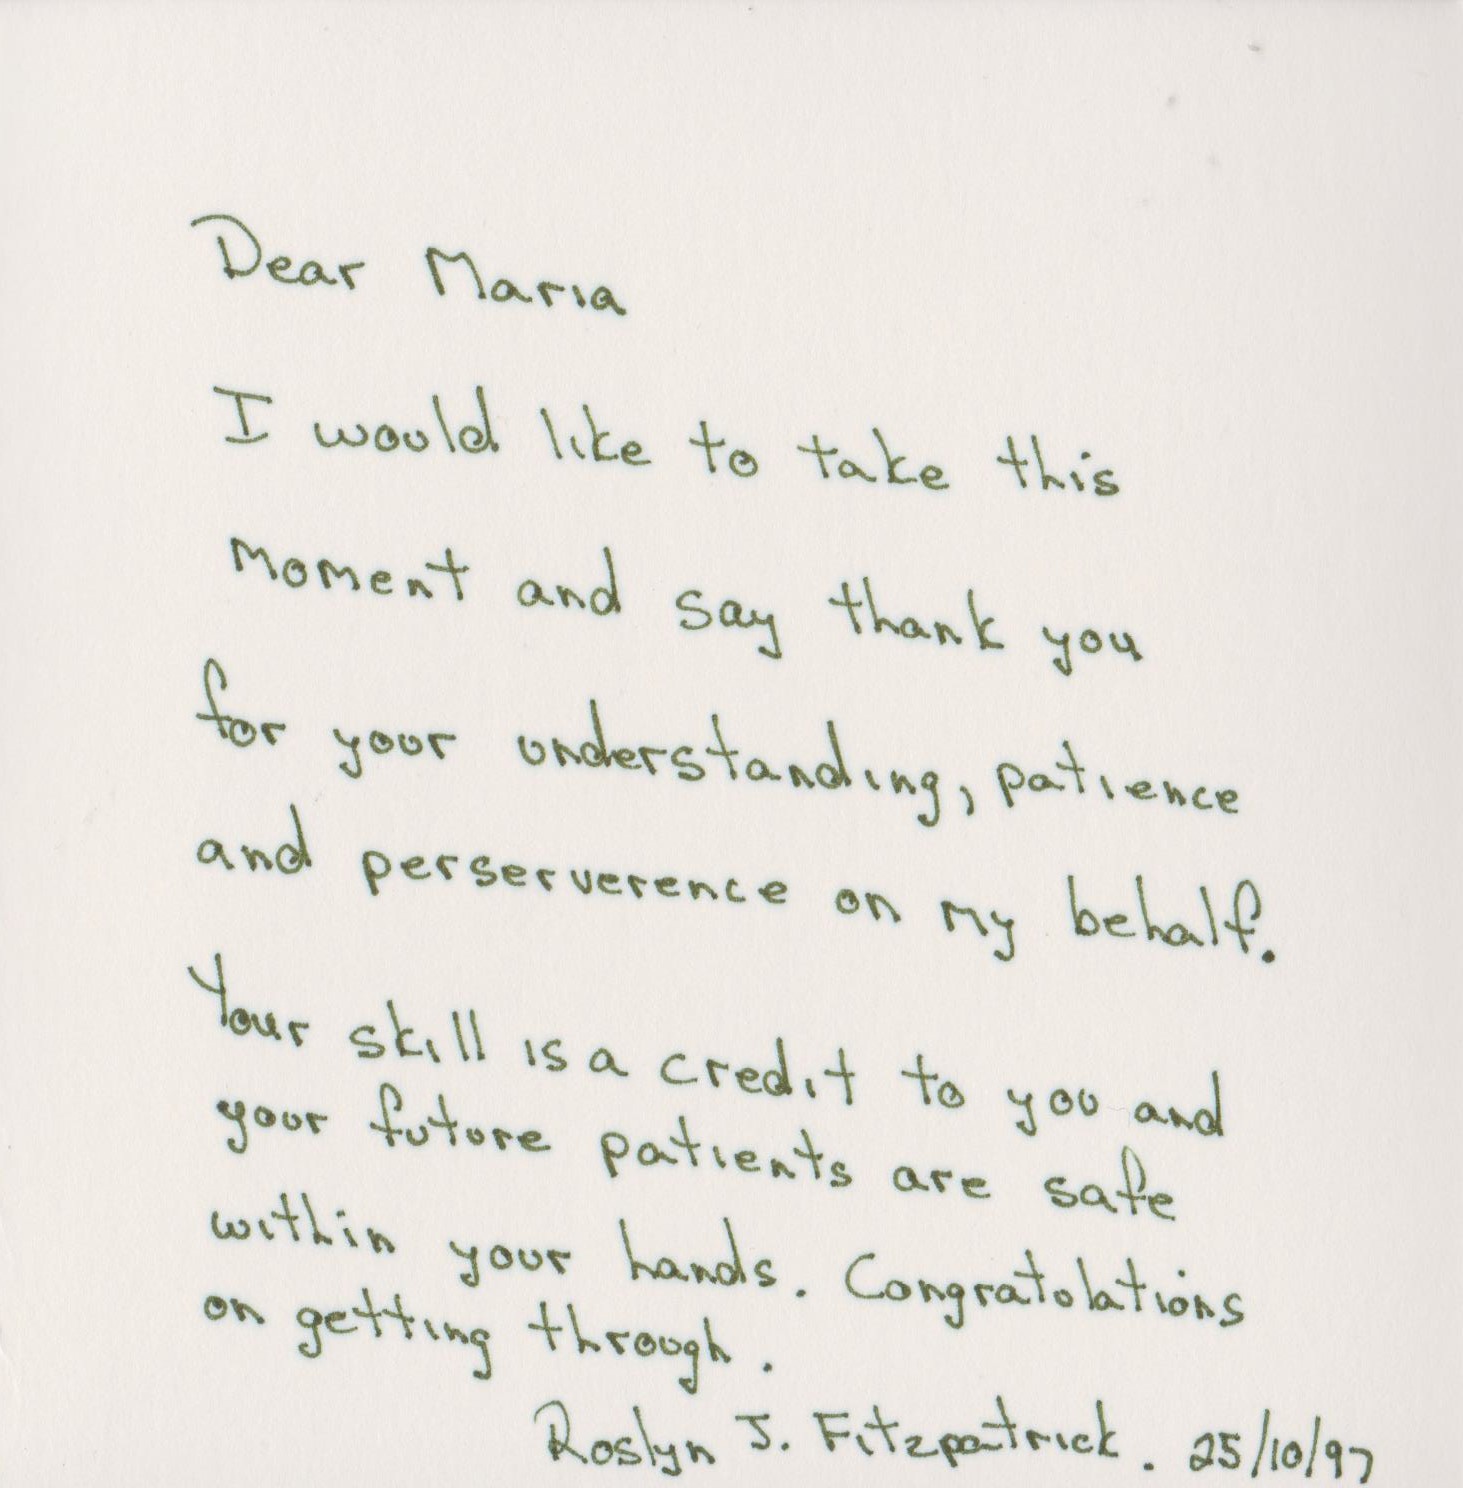 Dear Maria
I would like to take this
moment and say thank you
for your understanding, patience
and perserverence on my behalf.
Your skill is a credit to you and
your future patients are safe
within your hands. Congratulations
on getting through.
Roslyn J. Fitzpatrick. 25/10/97